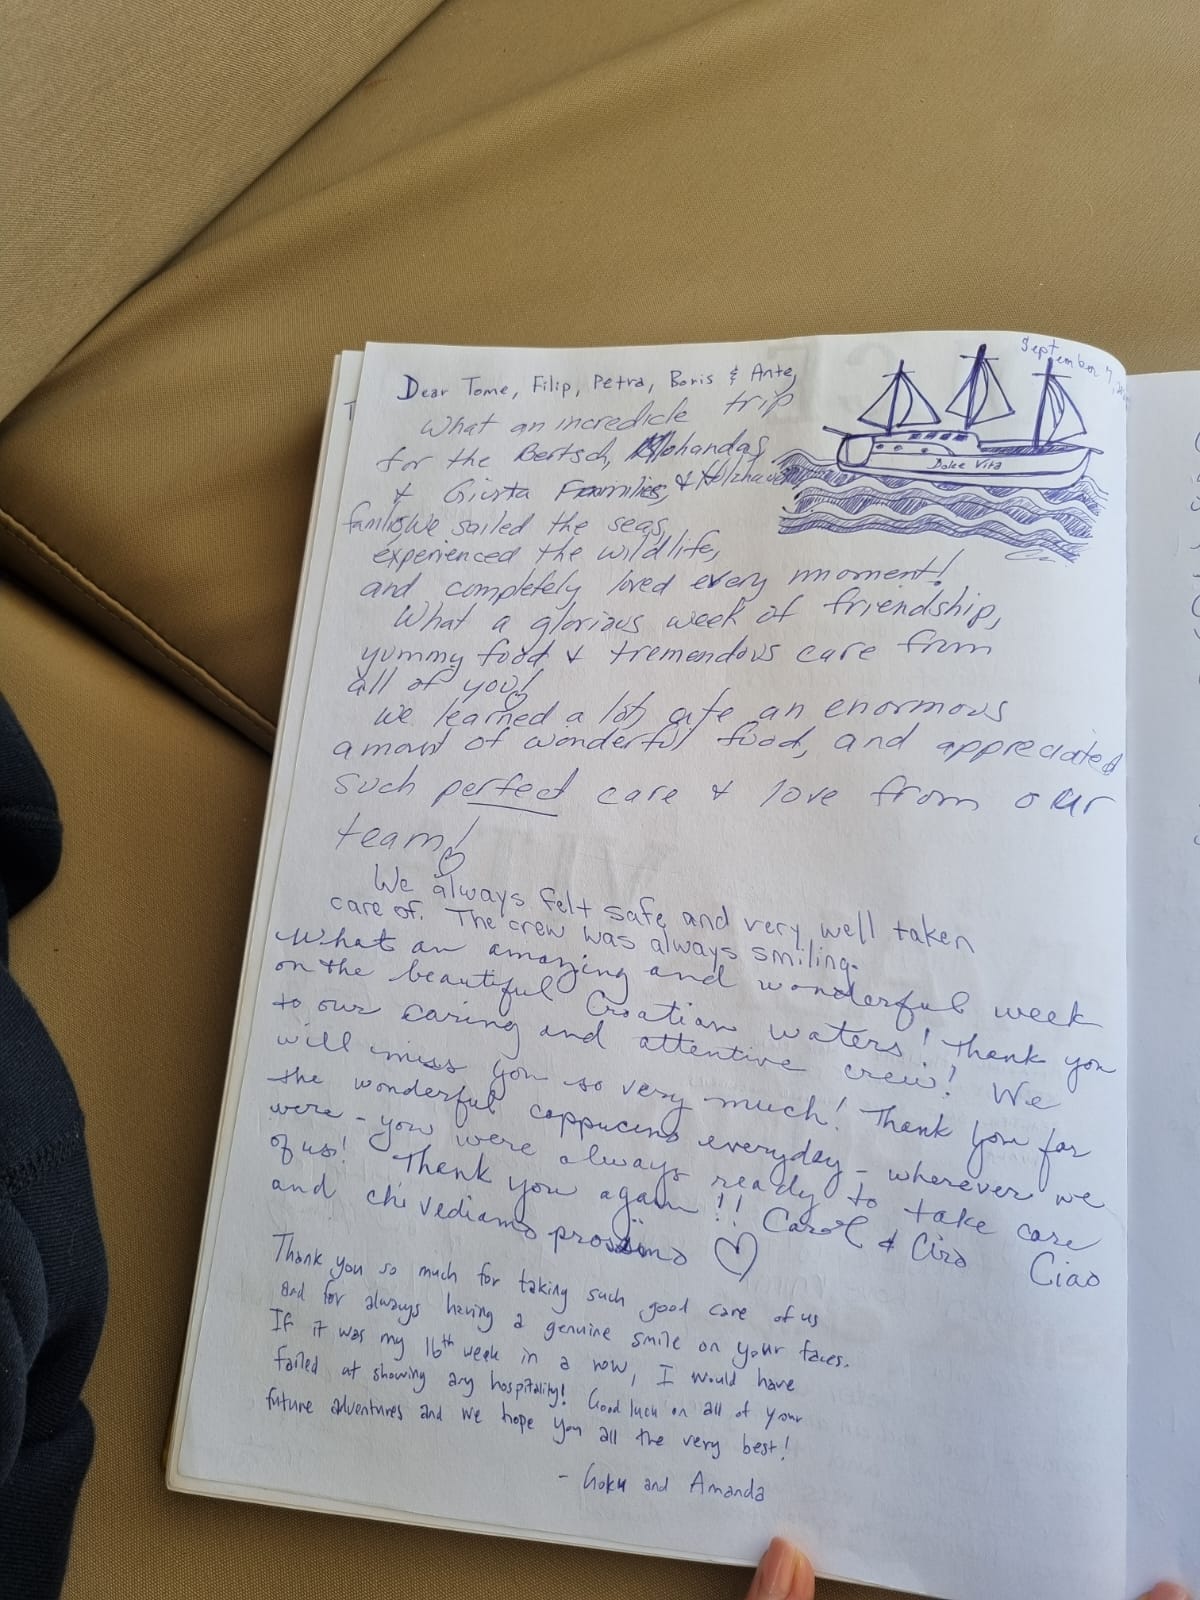 September 7,
Dear Tome, Filip, Petra, Boris & Ante,
What an incredicle trip
for the Bertsch, Mohandas,
& Giusta Families, & Holzhauer
families We sailed the seas,
Dolce Vita
experienced the wildlife,
and completely loved every moment!
What a glorious week of friendship,
yummy food & tremendous care from
all of you!
We learned a lot, ate an enormous
amount of wonderful food, and appreciated
such perfect care & love from our
team!
We always felt safe and very well taken
care of. The crew was always smiling.
What an amazing and wonderful week
on the beautiful Croatian waters! Thank you
to our caring and attentive crew! We
will miss you so very much! Thank you for
the wonderful cappucino everyday - wherever we
were - you were always ready to take care
of us! Thank you again!! Carol & Ciro Ciao
and chi vediamo prossimo
Thank you so much for taking such good care of us
and for always having a genuine smile on your faces.
If it was my 16th week in a row, I would have
failed at showing any hospitality! Good luck on all of your
future adventures and we hope you all the very best!
- Goku and Amanda